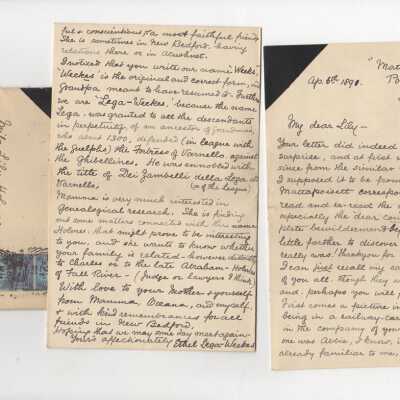 ful & conscientious & a most faithful friend.
She is sometimes in New Bedford – having
relations there or in Acushnet.
I noticed that you write our name "Weeks."
"Weekes" is the original and correct form, and
Grandpa meant to have resumed it. Further
we are 'Lega-Weekes', because the name
Lega, was granted to all the descendants
in perpetuity of an ancestor of grandma's,
who about 1300, defended (in league with
the Guelphs) the Fortress of Varnello against
the Ghibellines. He was ennobled with
the title of Dei Zambelli della Lega di
Varnello. (of the league)
Mamma is very much interested in
Genealogical research. She is finding
out some matters connected with the name
Holmes that might prove to be interesting
to you, and she wants to know whether
your family is related – however distantly –
to Charles or to the late Abraham Holmes
of Fall River – (Judge or lawyers I think)
With love to your Mother & yourself
from Mamma, Oceana, and myself,
& with kind remembrances for all
friends in New Bedford.
Hoping that we may some day meet again
Yours affectionately Ethel Lega-Weekes
"Mat
Ap. 6th 1890.
My dear Lily –
Your letter did indeed
surprise, and at first
since from the similar
I supposed it to be from
Mattapoisett correspon
read and re-read the
especially the dear con
plete bewilderment & beg
little farther to discover
really was. Thank you for
I can first recall my ea
of you all. Though they
and perhaps you will
First comes a picture in
being in a railway-car
in the company of you
one was Artie, I know, i
already familiar to me,